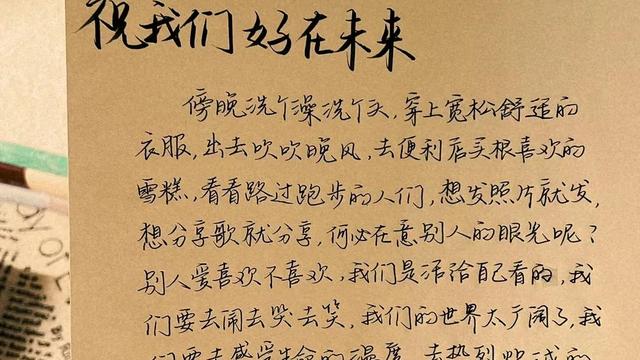 祝我们好在未来
傍晚洗个澡洗个头，穿上宽松舒适的
衣服，出去吹吹晚风，去便利店买根喜欢的
雪糕，看看路过跑步的人们，想发照片就发，
想分享歌就分享，何必在意别人的眼光呢？
别人爱喜欢不喜欢，我们是活给自己看的，我
们要去闹去哭去笑，我们的世界太广阔了，我
们要去感受生命的温度，去热烈